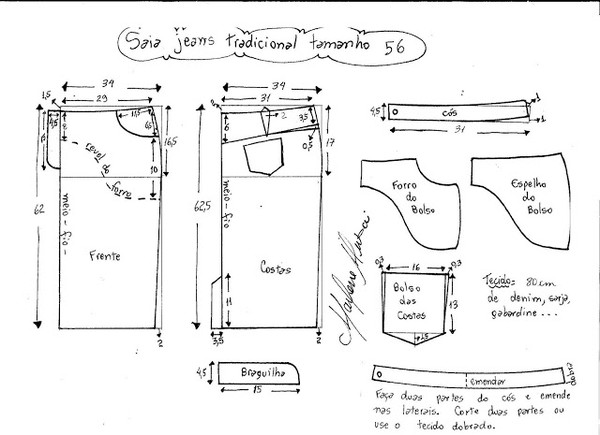 Saia jeans tradicional tamanho 56
34
29
1,5
4,5
8
11,5
6,5
16,5
10
revel
do
forro
62
meio-fio
Frente
2
34
31
3
2
3,5
6
0,5
17
62,5
meio-fio
Costas
11
3,5
2
4,5
Braguilha
15
4,5
cós
1
1
31
Forro
do
Bolso
Espelho
do
Bolso
0,3
16
0,3
Bolso
das
Costas
13
1,5
Tecido: 80cm
de denim, sarja,
gabardine...
Marlene Mukai
emendar
dobra
Faça duas partes do cós e emende
nas laterais. Corte duas partes ou
use o tecido dobrado.